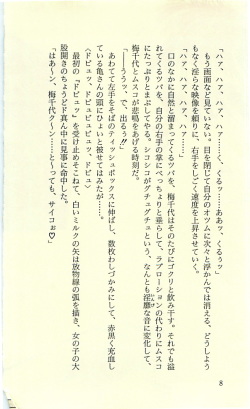 「ハァ、ハァ、ハァ、ハァッ……く、くるッ……ああッ、くるぅッ」
もう画面など見ていない。目を閉じて自分のオツムに次々と浮かんでは消える、どうしよう
もなく淫らな映像を頼りに、右手をしごく速度を上昇させていく。
「ハァ、ハァッ、ハァッ、ハァッ」
口のなかに自然と溜まってくるツバを、梅千代はそのたびにゴクリと飲み干す。それでも溢
れてくるツバを、自分の右手の掌にべっちょりと垂らして、ラブローションの代わりにムスコ
にたっぷりとまぶしてやる。シコシコがグチュグチュという、なんとも淫靡な音に変化して、
梅千代とムスコが悲鳴をあげる時刻だ。
――ううッ、で、出るぅ!!
あわてて左手をそばのティッシュボックスに伸ばし、数枚わしづかみにして、赤黒く充血し
ている亀さんの頭にひょいと被せてはみたが……。
〈ドピュッ、ドピュッ、ドピュドピュッ、ドピュ〉
最初の『ドピュッ』を受け止めそこねて、白いミルクの矢は放物線の弧を描き、女の子の大
股開きのちょうどド真ん中に見事に命中した。
「はあ〜ン、梅千代ク〜ン……と〜っても、サイコぉ♡」
8